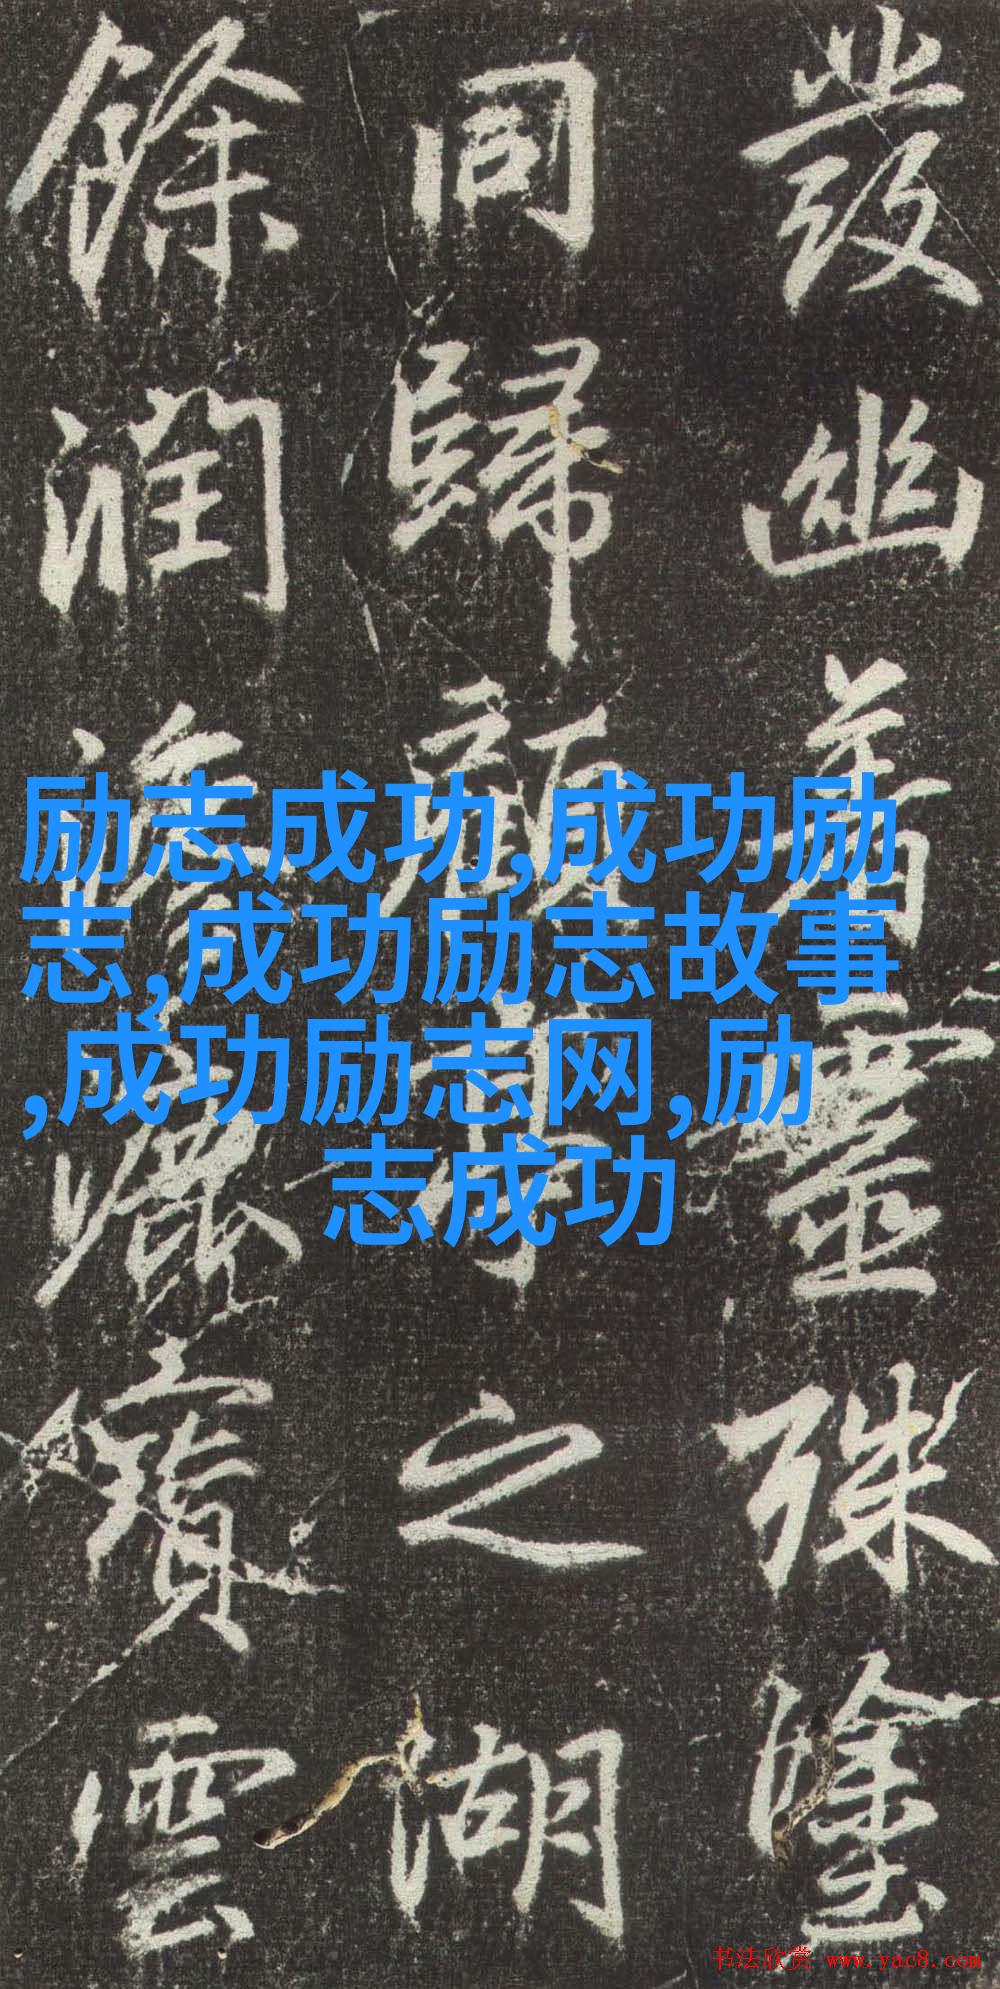 發幽著靈殊隆
同歸願
之湖
餘潤
雲
励志成功,成功励
志,成功励志故事
,成功励志网,励
志成功
书法欣赏 www.yac8.com